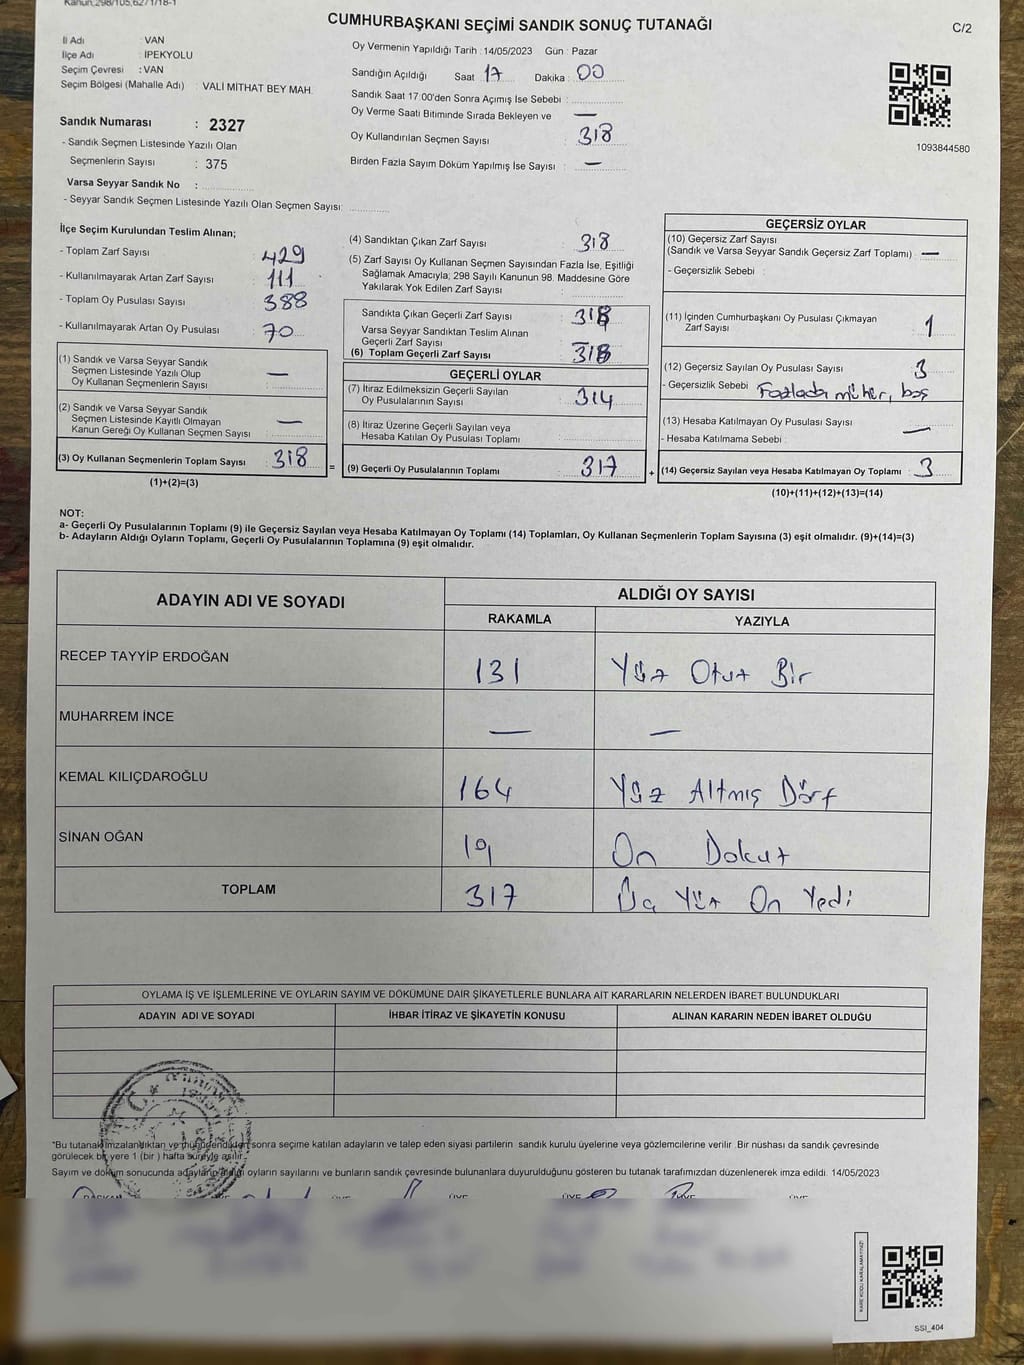 Kanun,298/105,6271/18-1
CUMHURBAŞKANI SEÇİMİ SANDIK SONUÇ TUTANAĞI
C/2
İl Adı : VAN
İlçe Adı : IPEKYOLU
Seçim Çevresi : VAN
Seçim Bölgesi (Mahalle Adı) : VALI MİTHAT BEY MAH.
Sandık Numarası : 2327
- Sandık Seçmen Listesinde Yazılı Olan
Seçmenlerin Sayısı : 375
Varsa Seyyar Sandık No :
- Seyyar Sandık Seçmen Listesinde Yazılı Olan Seçmen Sayısı:
Oy Vermenin Yapıldığı Tarih : 14/05/2023 Gün : Pazar
Sandığın Açıldığı Saat 17 Dakika : 00
Sandık Saat 17:00'den Sonra Açımış İse Sebebi :
Oy Verme Saati Bitiminde Sırada Bekleyen ve : —
Oy Kullandırılan Seçmen Sayısı : 318
Birden Fazla Sayım Döküm Yapılmış İse Sayısı : —
1093844580
İlçe Seçim Kurulundan Teslim Alınan;
- Toplam Zarf Sayısı : 429
- Kullanılmayarak Artan Zarf Sayısı : 111
- Toplam Oy Pusulası Sayısı : 388
- Kullanılmayarak Artan Oy Pusulası : 70
(1) Sandık ve Varsa Seyyar Sandık
Seçmen Listesinde Yazılı Olup
Oy Kullanan Seçmenlerin Sayısı : —
(2) Sandık ve Varsa Seyyar Sandık
Seçmen Listesinde Kayıtlı Olmayan
Kanun Gereği Oy Kullanan Seçmen Sayısı : —
(3) Oy Kullanan Seçmenlerin Toplam Sayısı : 318
(1)+(2)=(3)
=
(4) Sandıktan Çıkan Zarf Sayısı : 318
(5) Zarf Sayısı Oy Kullanan Seçmen Sayısından Fazla İse, Eşitliği
Sağlamak Amacıyla; 298 Sayılı Kanunun 98. Maddesine Göre
Yakılarak Yok Edilen Zarf Sayısı :
Sandıkta Çıkan Geçerli Zarf Sayısı : 318
Varsa Seyyar Sandıktan Teslim Alınan
Geçerli Zarf Sayısı : —
(6) Toplam Geçerli Zarf Sayısı : 318
GEÇERLİ OYLAR
(7) İtiraz Edilmeksizin Geçerli Sayılan
Oy Pusulalarının Sayısı : 314
(8) İtiraz Üzerine Geçerli Sayılan veya
Hesaba Katılan Oy Pusulası Toplamı :
(9) Geçerli Oy Pusulalarının Toplamı : 317
+
GEÇERSİZ OYLAR
(10) Geçersiz Zarf Sayısı
(Sandık ve Varsa Seyyar Sandık Geçersiz Zarf Toplamı) : —
- Geçersizlik Sebebi :
(11) İçinden Cumhurbaşkanı Oy Pusulası Çıkmayan
Zarf Sayısı : 1
(12) Geçersiz Sayılan Oy Pusulası Sayısı : 3
- Geçersizlik Sebebi mühür, boş
(13) Hesaba Katılmayan Oy Pusulası Sayısı : —
- Hesaba Katılmama Sebebi :
(14) Geçersiz Sayılan veya Hesaba Katılmayan Oy Toplamı : 3
(10)+(11)+(12)+(13)=(14)
NOT:
a- Geçerli Oy Pusulalarının Toplamı (9) ile Geçersiz Sayılan veya Hesaba Katılmayan Oy Toplamı (14) Toplamları, Oy Kullanan Seçmenlerin Toplam Sayısına (3) eşit olmalıdır. (9)+(14)=(3)
b- Adayların Aldığı Oyların Toplamı, Geçerli Oy Pusulalarının Toplamına (9) eşit olmalıdır.
ADAYIN ADI VE SOYADI
ALDIĞI OY SAYISI
RAKAMLA YAZIYLA
RECEP TAYYİP ERDOĞAN 131 Yüz Otuz Bir
MUHARREM İNCE — —
KEMAL KILIÇDAROĞLU 164 Yüz Altmış Dört
SİNAN OĞAN 19 On Dokuz
TOPLAM 317 Üç Yüz On Yedi
OYLAMA İŞ VE İŞLEMLERİNE VE OYLARIN SAYIM VE DÖKÜMÜNE DAİR ŞİKAYETLERLE BUNLARA AİT KARARLARIN NELERDEN İBARET BULUNDUKLARI
ADAYIN ADI VE SOYADI İHBAR İTİRAZ VE ŞİKAYETİN KONUSU ALINAN KARARIN NEDEN İBARET OLDUĞU
*Bu tutanak imzalandıktan ve mühürlendikten sonra seçime katılan adayların ve talep eden siyasi partilerin sandık kurulu üyelerine veya gözlemcilerine verilir. Bir nüshası da sandık çevresinde
görülecek bir yere 1 (bir) hafta süreyle asılır.
Sayım ve döküm sonucunda adayların aldığı oyların sayılarını ve bunların sandık çevresinde bulunanlara duyurulduğunu gösteren bu tutanak tarafımızdan düzenlenerek imza edildi. 14/05/2023
BAŞKAN ÜYE ÜYE ÜYE ÜYE ÜYE
KARE KODU KARALAMAYINIZ!
SSI_404